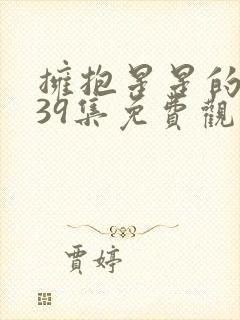 擁抱星星的
39集免費觀
賈婷